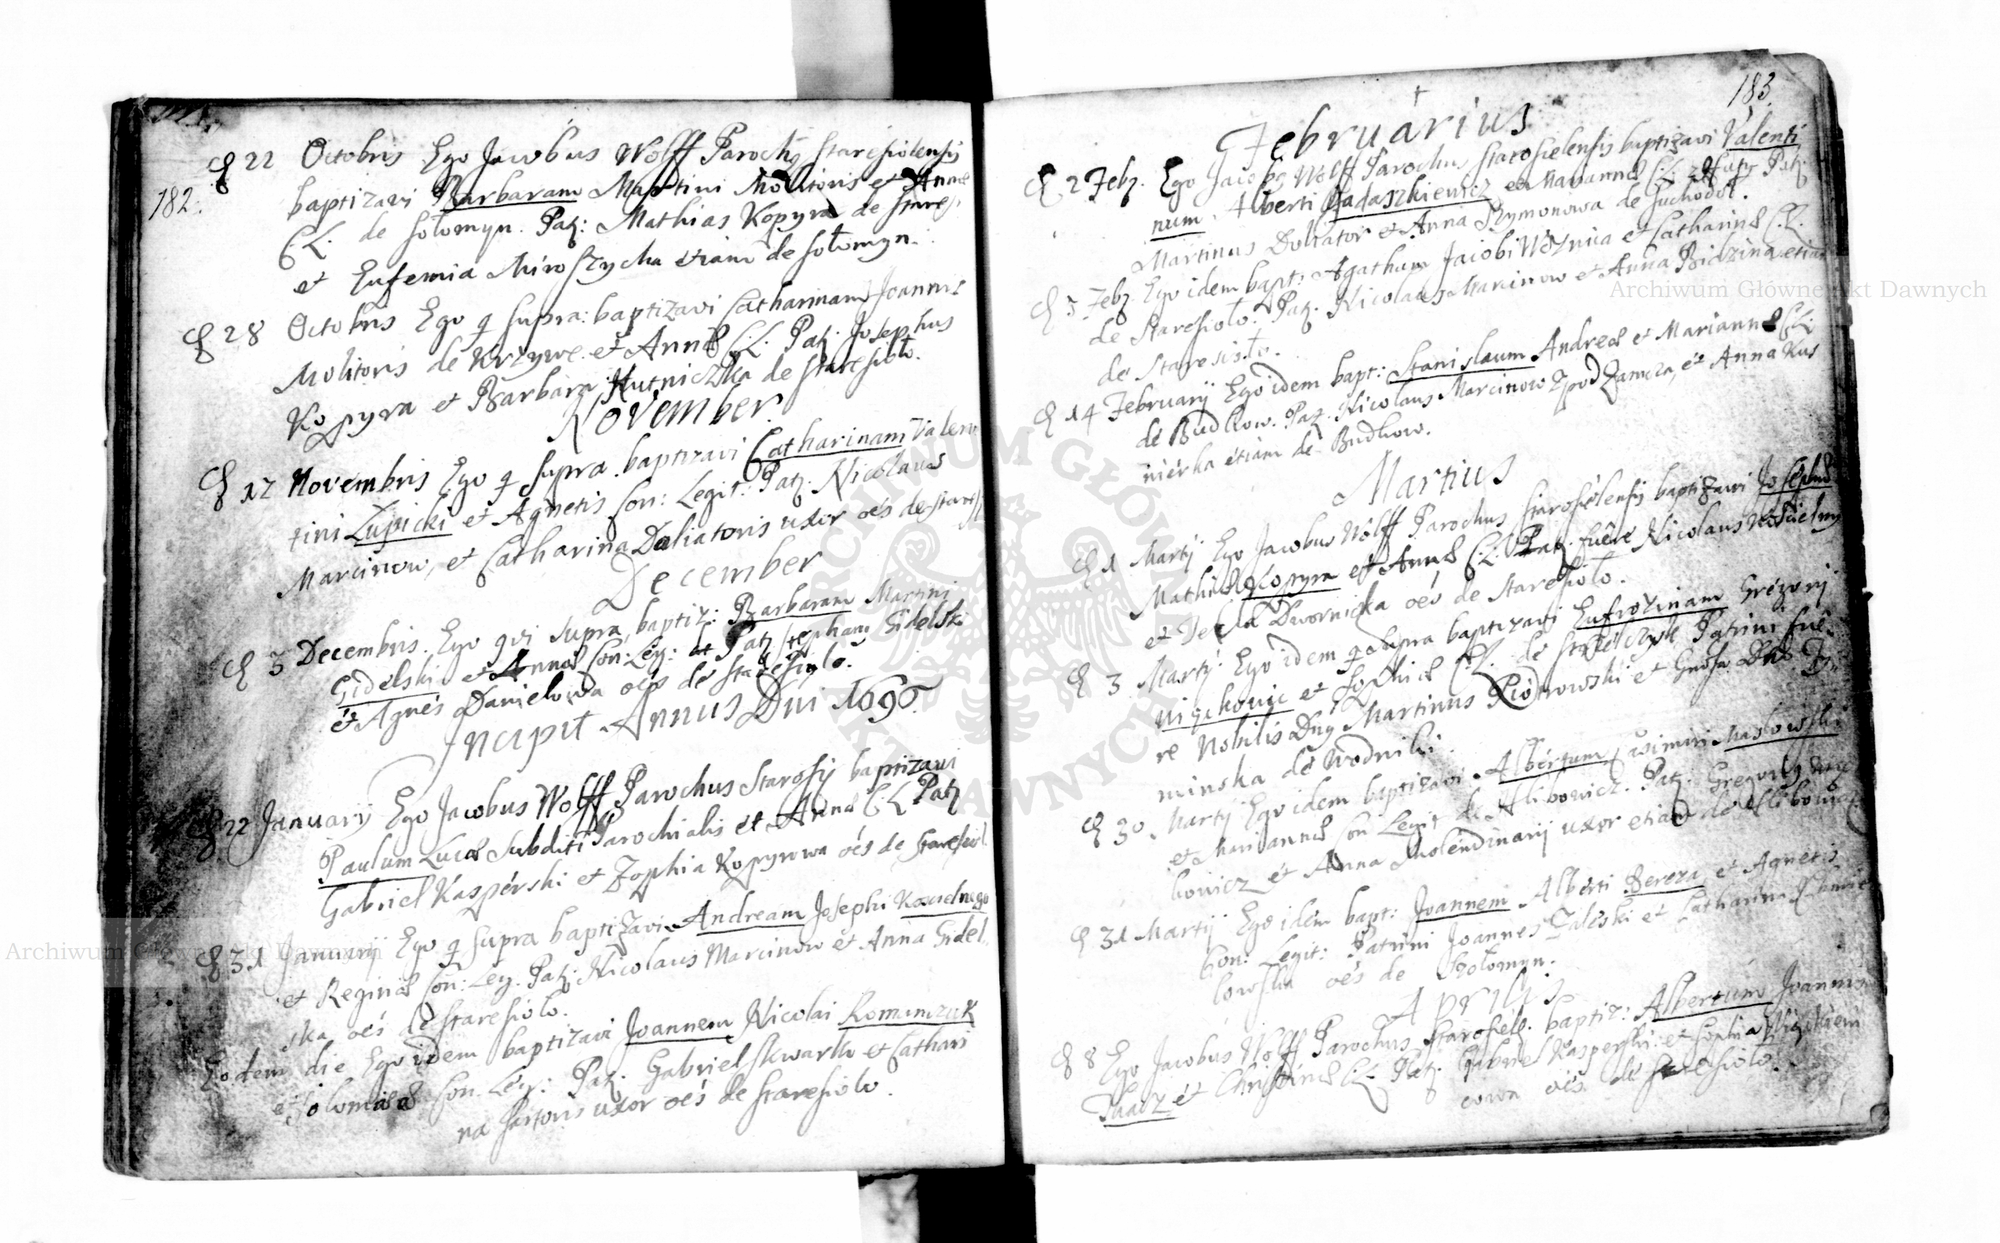 182.
22 Octobris Ego Jacobus Wolff Parochus staresiolensis
baptizavi Barbaram Martini Molitoris et Annae
C.L. de sołomyn. Patr: Mathias Kopyra de stares.
et Eufemia Miroszycha etiam de sołomyn.
28 Octobris Ego q supra: baptizavi Catharinam Joannis
Molitoris de Krzywe. et Annae C.L. Patr. Josephus
Kopyra et Barbara Hutniczka de staresioł.
November
17 Novembris Ego q supra baptizavi Catharinam Valen
tini Łupicki et Agnetis Con: Legit: Patr. Nicolaus
Marcinow, et Catharina Doliatoris uxor oes de stares
December
3 Decembris. Ego qui supra, baptiz: Barbaram Martini
Gidelski et Annae Con: Leg: Patr Stephang Gidelski
et Agnes Danielowa oes de staresiolo.
Incipit Annus Dni 1696.
22 January Ego Jacobus Wolff Parochus Starosij baptizavi
Paulum Lucae Subditi Parochialis et Annae C.L. Patr
Gabriel Kasperski et Zophia Kopyrowa oes de staresiol
31 Januarij Ego q supra baptizavi Andream Josephi
et Reginae Con: Leg. Patr: Nicolaus Marcinow et Anna Gidel
ska oes de staresiolo.
Eodem die Ego idem baptizavi Joannem Nicolai Romanczuk
et Con. Leg: Patr. Gabriel Skwarko et Cathari
na sartoris uxor oes de staresiolo.
183.
Februarius
2 Febr. Ego Jacobg Wolff Parochus starosielensis baptizavi Valenti
num Alberti Sadaszkiewicz et Mariannae C.L. Patr.
Martinus Doliator et Anna Szymonowa de suchodoł.
3 Febr. Ego idem bapt: Agatham Jacobi Woznica et Catharinae C.L.
de staresioło. Patr. Nicolaus Marcinow et Anna Bidzina etiam
de staresioło.
14 Februarij Ego idem bapt: Stanislaum Andreae et Mariannae C.L.
de Budkow. Patr. Nicolaus Marcinow zpod Zamcza, et Anna Kus
nierka etiam de Budkow.
Martius
1 Martij Ego Jacobus Wolff Parochus starosielensis baptizavi Josephu
Mathiae Kopyra et Annae C.L. Patr. fuere Nicolaus Koscielny
et Tekla Dwornicka oes de staresioło.
3 Martij Ego idem q supra baptizavi Eufrozinam Gregorij
et Sophiae C.L. de Patrini fue
re Nobilis Dng Martinus Piotrowski et Gnosa Dna
minska de Wodniki.
30 Martij Ego idem baptizavi Albertum Casimiri Masłowski
et Mariannae Con Legit de Hlibowicz. Patr: Gregorig
bowicz et Anna Molendinarij uxor etiam de Hlibowicz
31 Martij Ego idem bapt: Joannem Alberti Bereza et Agnetis
Con: Legit: Patrini Joannes Zaleski et Catharina
lowska oes de Szołomyn.
Aprilis
8 Ego Jacobus Wolff Parochus Starosiel. baptiz: Albertum Joannis
Tkacz et Christinae C.L. Patr. Gabriel Kasperski et Sophia
cowa oes de staresiolo.
Archiwum Główne Akt Dawnych
Archiwum Główne Akt Dawnych
ARCHIWUM GŁÓWNE AKT DAWNYCH